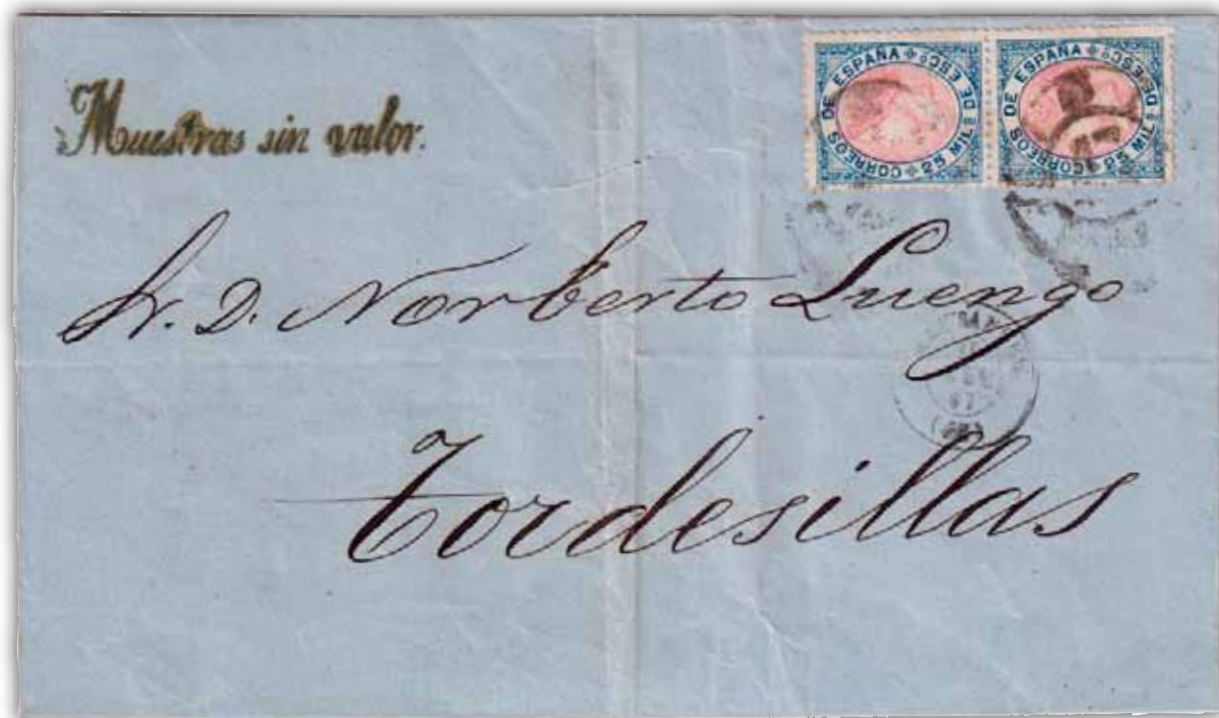 Muestras sin valor.
CORREOS DE ESPAÑA
25 MIL S DE ESC O
CORREOS DE ESPAÑA
25 MIL S DE ESC O
Sr. D. Norberto Luengo
Tordesillas